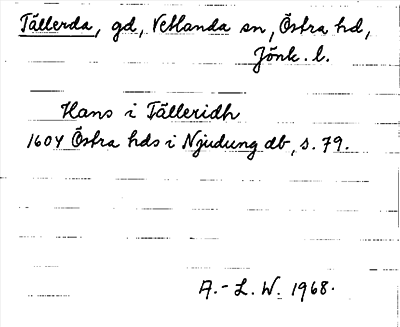 Tällerda, gd, Vetlanda sn, Östra hd,
Jönk. l.
Hans i Tälleridh
1604 Östra hds i Njudung db, s. 79.
A.-L. W. 1968.